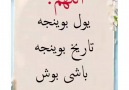 اللهم!
یول بوینجه
تاریخ بوینجه
باشی بوش